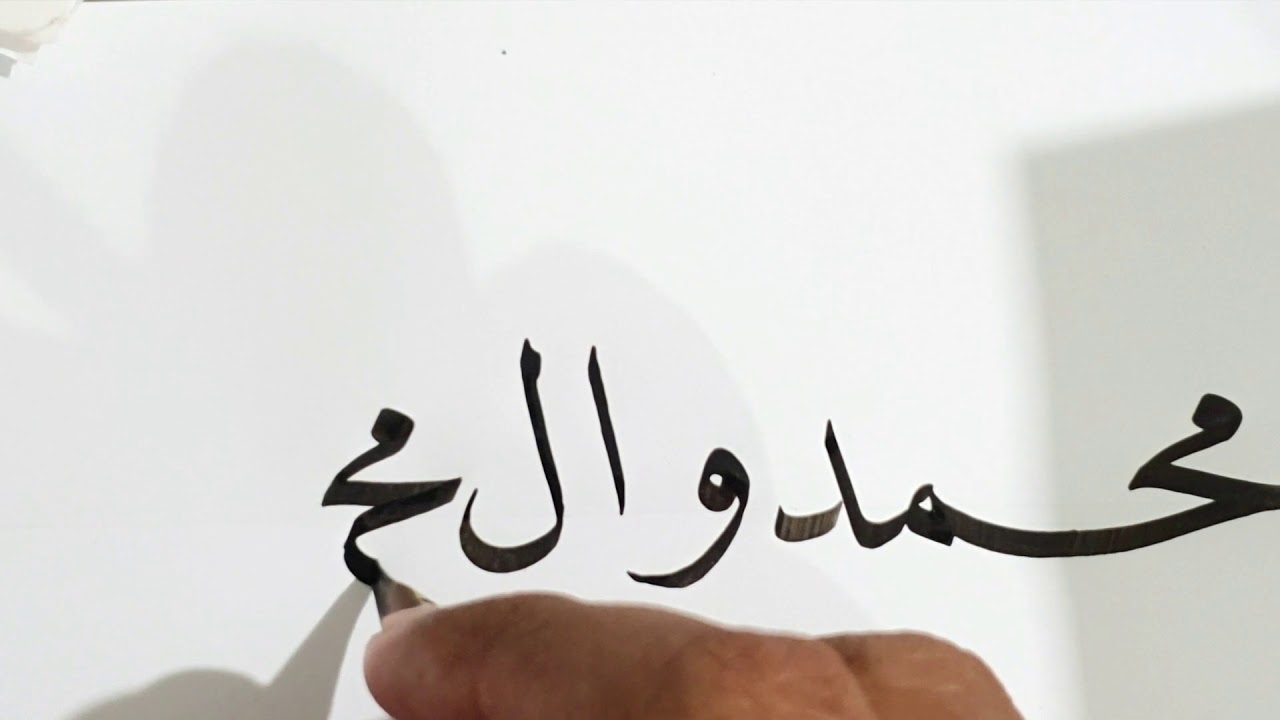 محمد وال مح